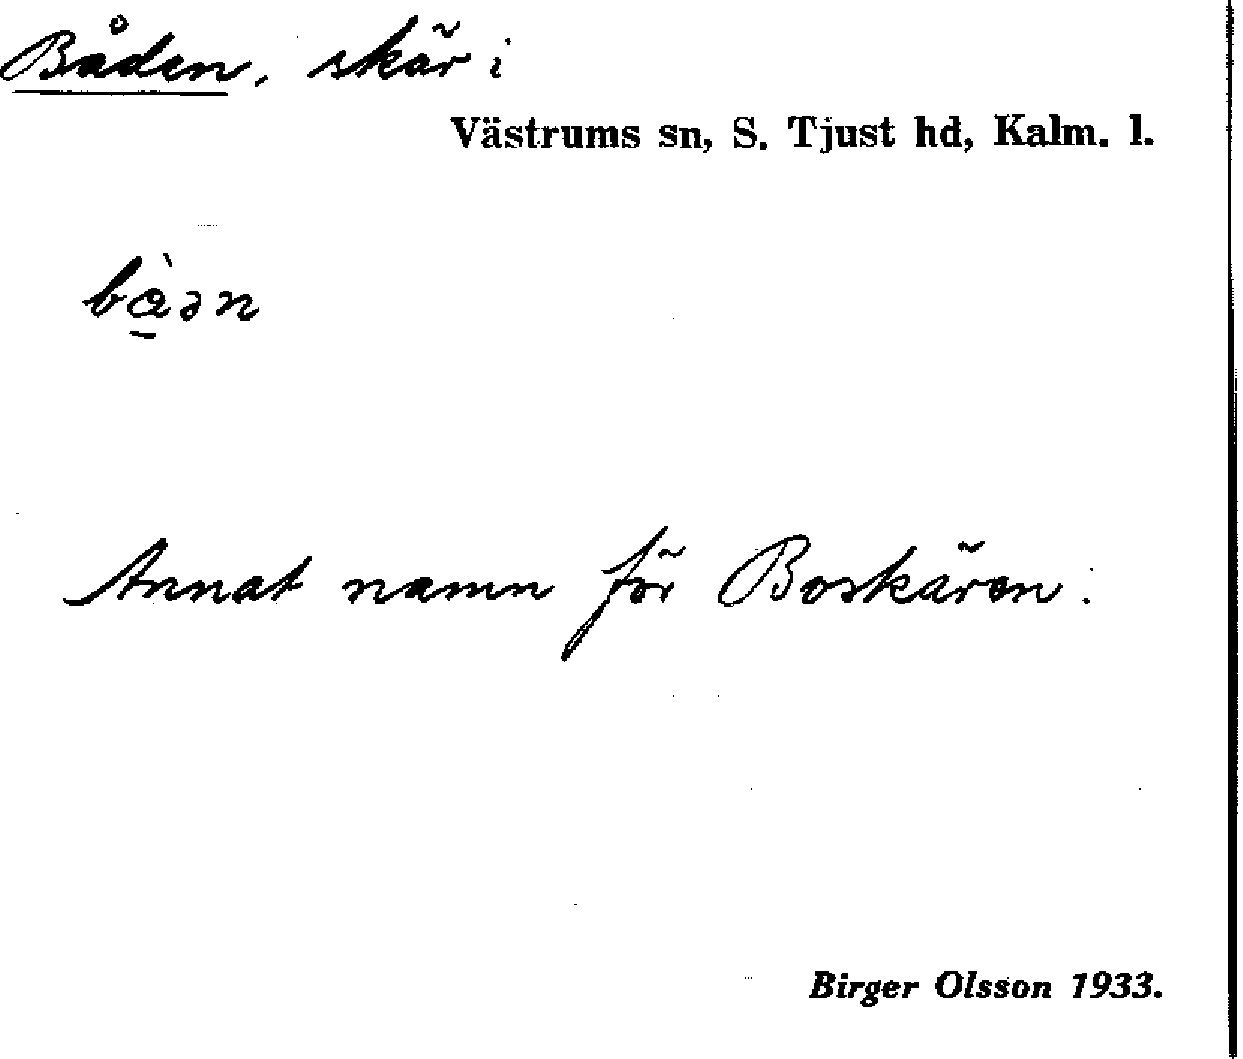 Båden, skär i
Västrums sn, S. Tjust hd, Kalm. l.
bàən
Annat namn för Boskären.
Birger Olsson 1933.